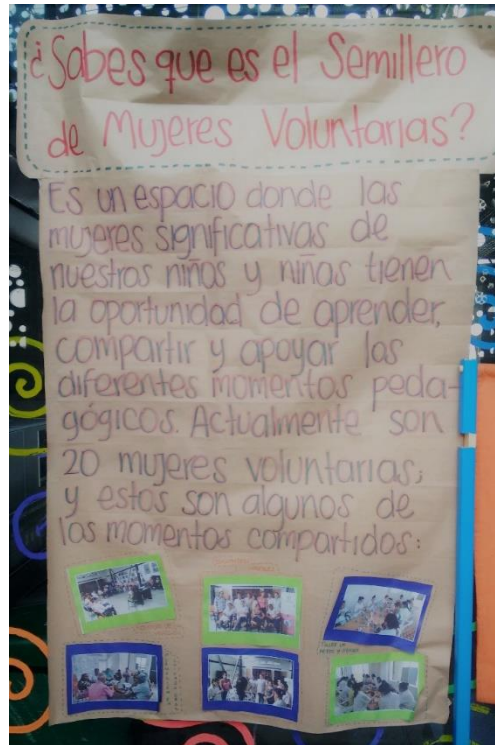 ¿Sabes que es el Semillero
de Mujeres Voluntarias?
Es un espacio donde las
mujeres significativas de
nuestros niños y niñas tienen
la oportunidad de aprender,
compartir y apoyar los
diferentes momentos peda-
gógicos. Actualmente son
20 mujeres voluntarias;
y estos son algunos de
los momentos compartidos: